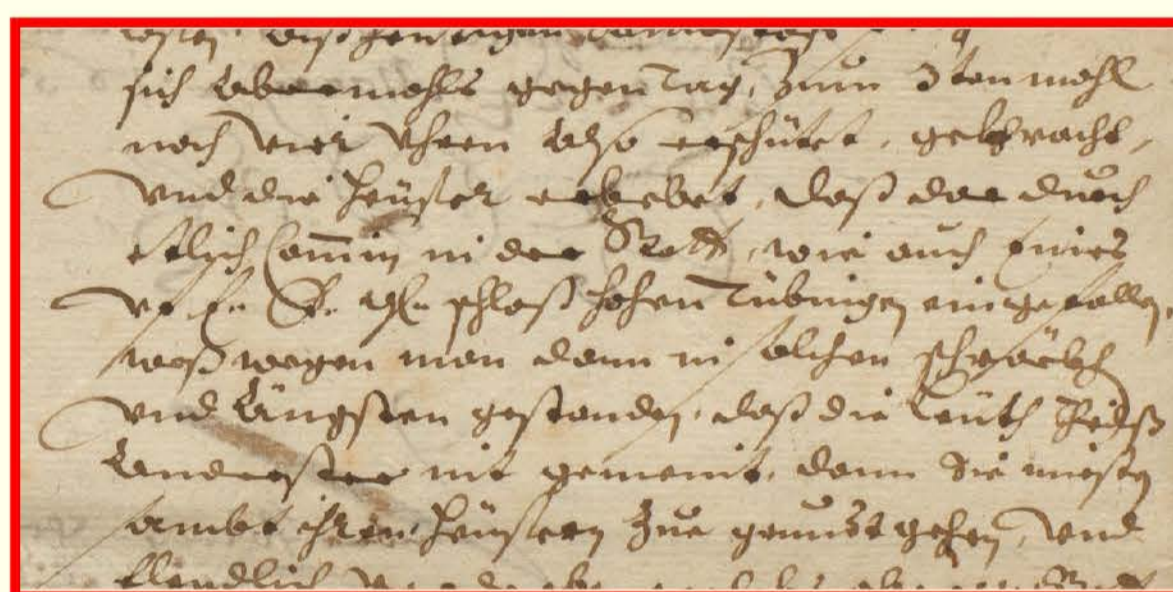 sich Abermahls gegen Tag, zum 3ten mahl
nach vier Uhren also erschütet, gekhracht,
vnd die Heüser erhebet, daß dar durch
etlich Camin in der Statt, wie auch eines
vf schloß hohen Tübingen eingefallen,
weßwegen man dann in solchen schräckh
vnd Ängsten gestanden, daß die Leüth
Anderster nit gemeint, dann Sie mießen
sambt ihren Heüsern zue grundt gehen, vnd
Ellendlich